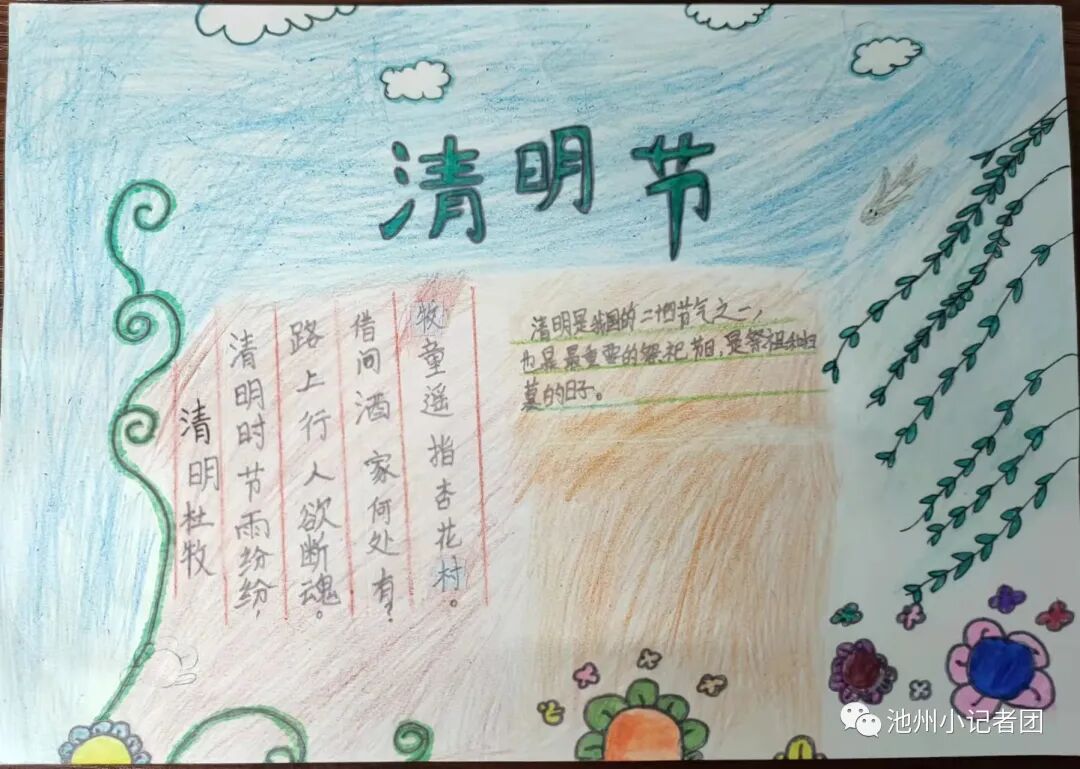 清明节
清明 杜牧
清明时节雨纷纷，
路上行人欲断魂。
借问酒家何处有？
牧童遥指杏花村。
清明是我国的二十四节气之一，
也是最重要的祭祀节日，是祭祖和扫
墓的日子。
池州小记者团